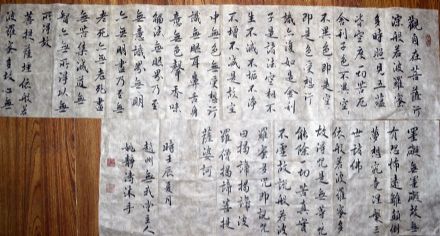 觀自在菩薩行
深般若波羅蜜
多時照見五蘊
皆空度一切苦厄
舍利子色不異空
即是色受想行
識亦復如是舍利
子是諸法空相不
生不滅不垢不淨
不增不減是故空
中無色無受想行
識無眼耳鼻舌身
意無色聲香味
觸法無眼界乃至
無意識界無無明
亦無無明盡乃至
老死亦無老死盡
無苦集滅道無
智亦無所得以無
所得故
菩提薩埵依般若
波羅蜜多故心無
罣礙無罣礙故無
有恐怖遠離顛倒
夢想究竟涅槃三
世諸佛
依般若波羅蜜多
是無等等咒
能除一切苦真實
不虛故說般若波
羅蜜多咒即說咒
曰揭諦揭諦波
羅僧揭諦菩提
薩婆訶
時壬辰夏月
趙州無我堂主人
姚靜濤沐手